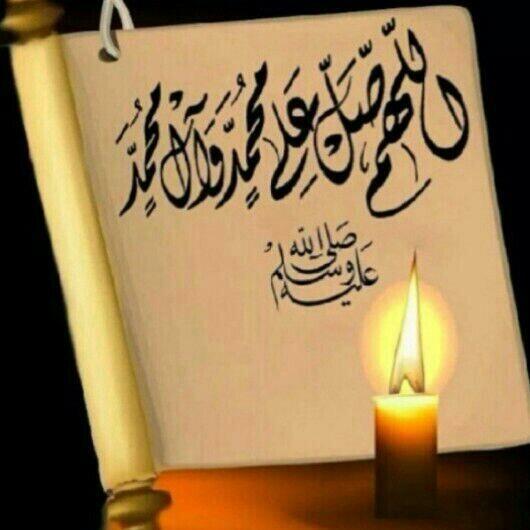 اللّهمّ صَلّ عَلى محمُدٍ وَآل محمُدٍ
صَلى الله
عَليه وسَلم